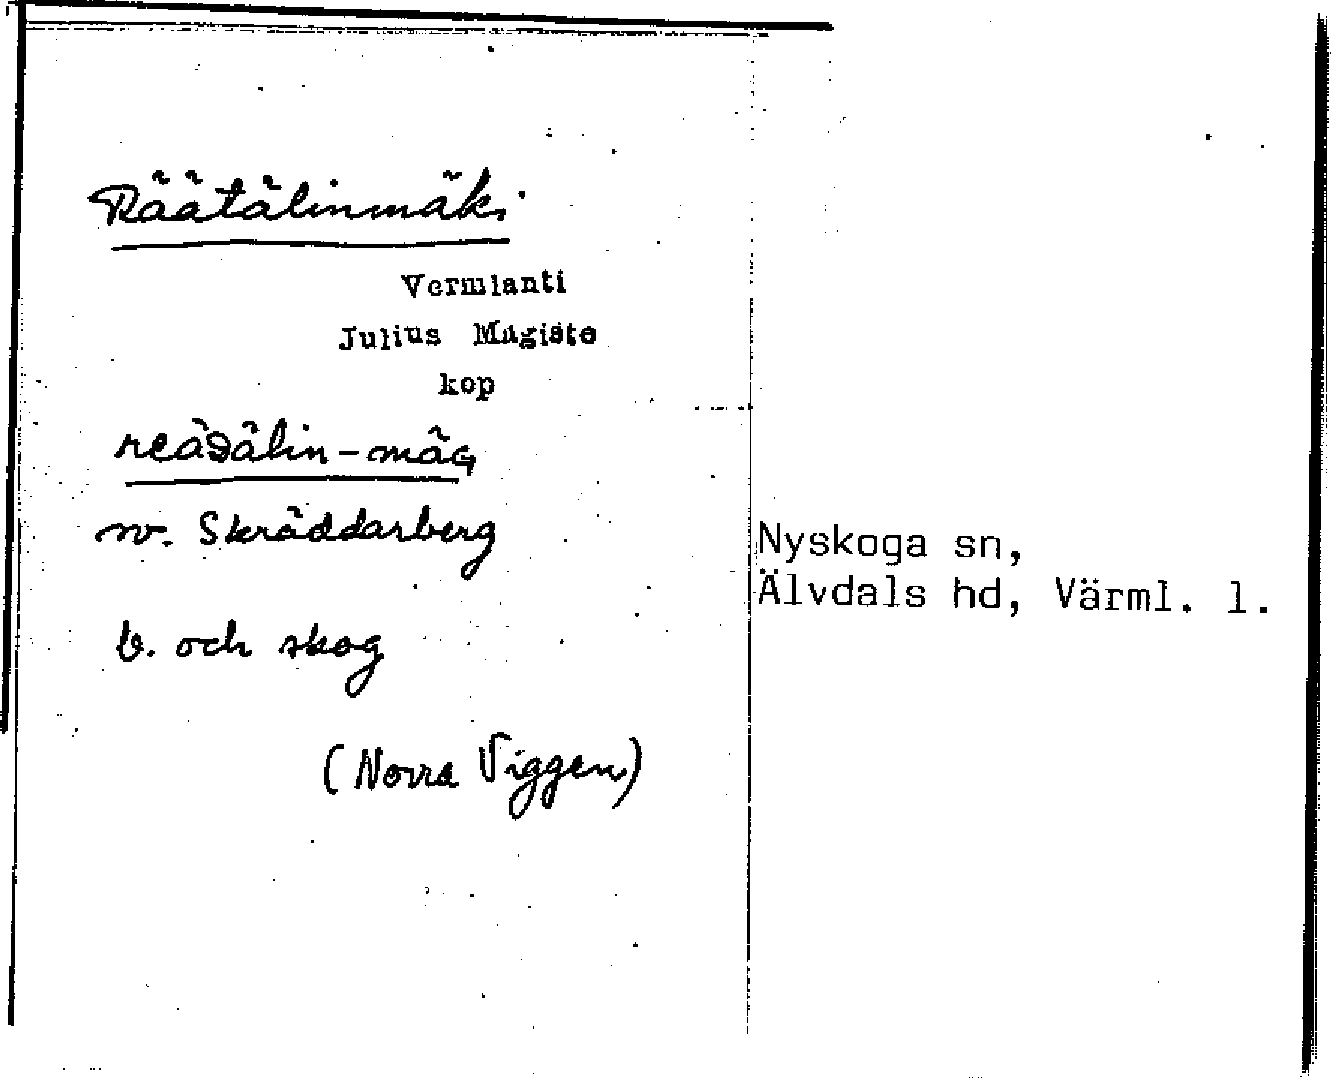 Räätälinmäki
Vermlanti
Julius Mägiste
kop
reäᴅ̌älin-mäɢ
rv. Skräddarberg
b. och skog
(Norra Viggen)
Nyskoga sn,
Älvdals hd, Värml. l.